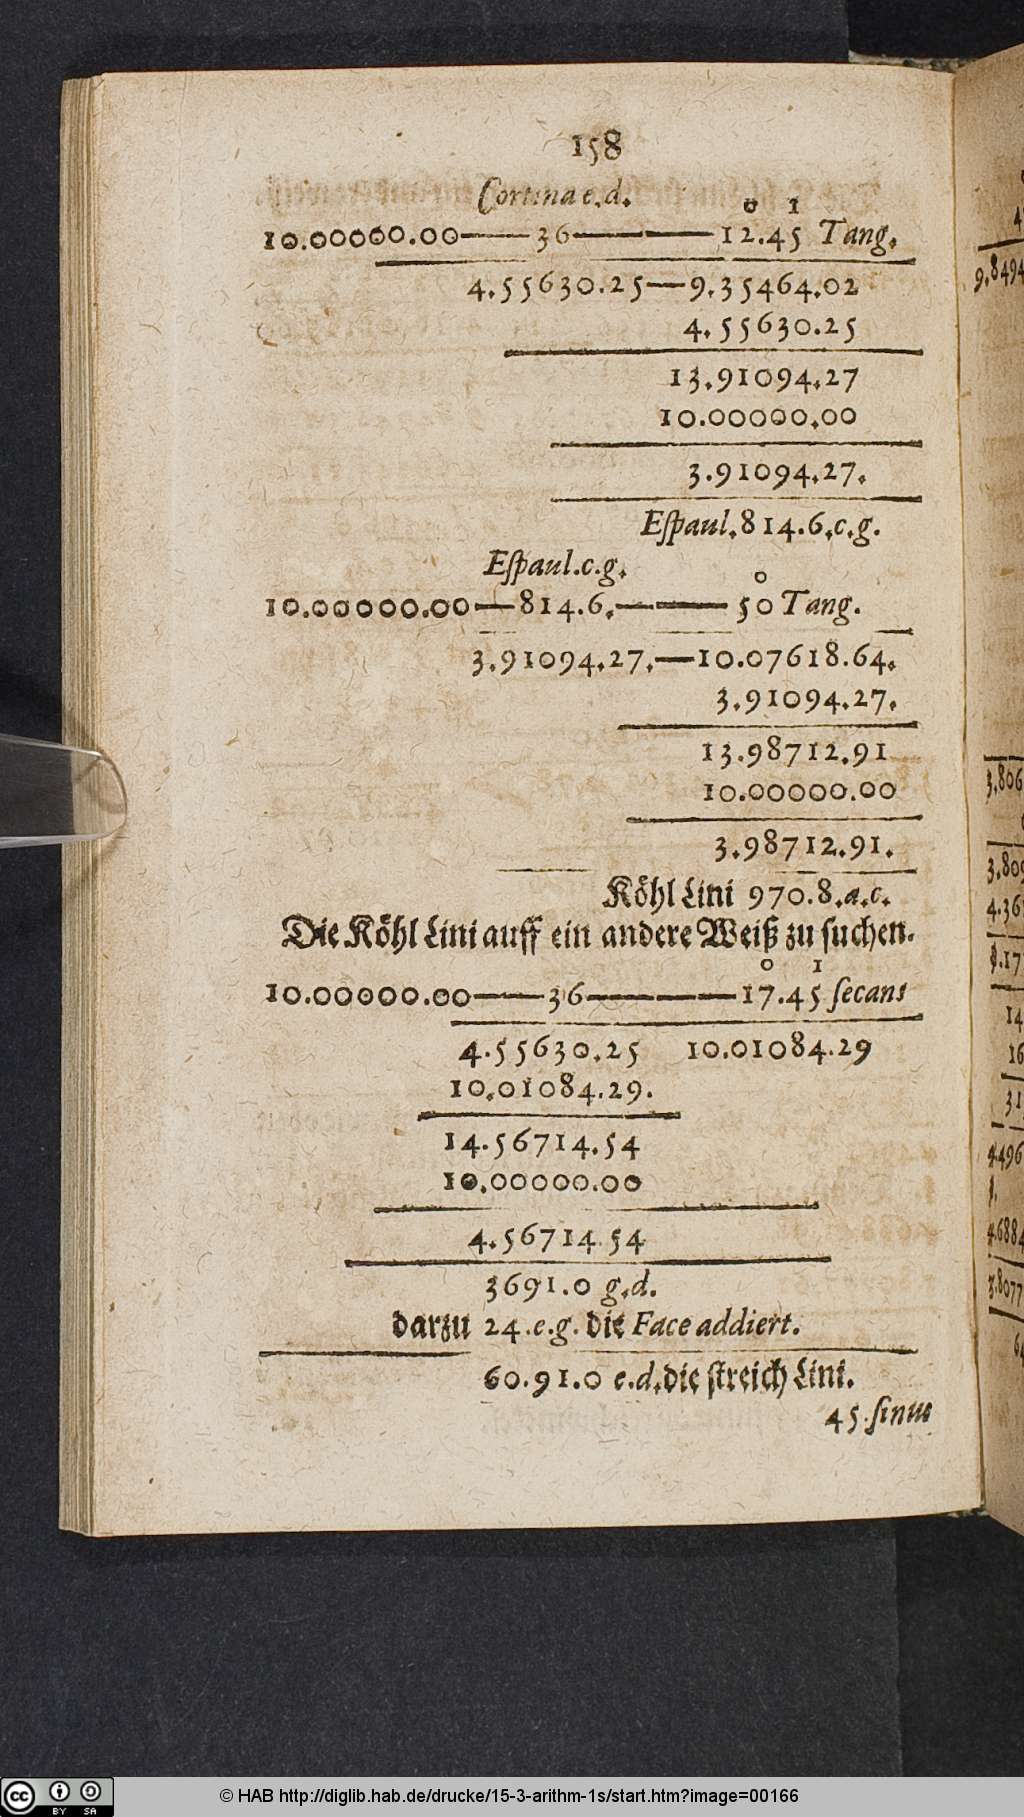 158
Cortina e.d.
o 1
10.00000.00——36————12.45 Tang.
4.55630.25—9.35464.02
4.55630.25
13.91094.27
10.00000.00
3.91094.27.
Eſpaul.814.6.c.g.
Eſpaul.c.g.
o
10.00000.00—814.6.———50 Tang.
3.91094.27.—10.07618.64.
3.91094.27.
13.98712.91
10.00000.00
3.98712.91.
Köhl Lini 970.8.a.c.
Die Köhl Lini auff ein andere Weiß zu ſuchen.
o 1
10.00000.00——36————17.45 ſecans
4.55630.25 10.01084.29
10.01084.29.
14.56714.54
10.00000.00
4.56714 54
3691.0 g.d.
darzu 24.e.g. die Face addiert.
60.91.0 e.d.die ſtreich Lini.
45.ſinus
4
9.8494
3.806
3.809
4.36
14
16
31
4.496
4.6884
3.8077
© HAB http://diglib.hab.de/drucke/15-3-arithm-1s/start.htm?image=00166
cc BY SA